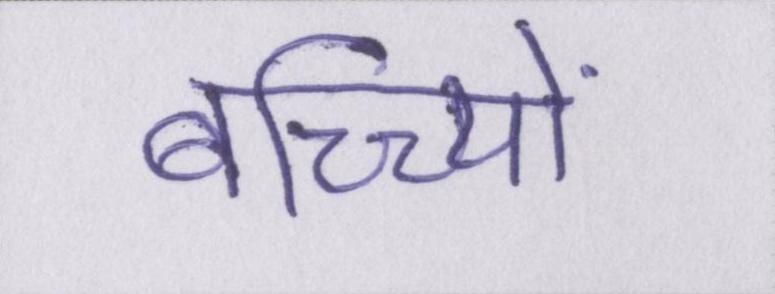 बच्चियों